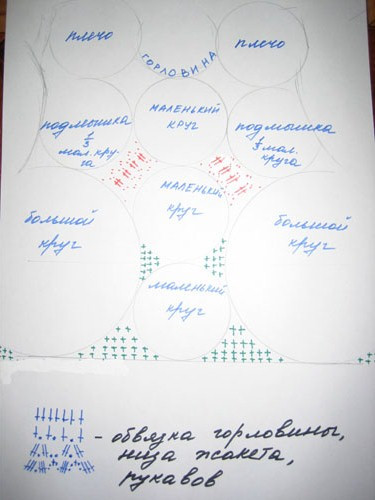 плечо
ГОРЛОВИНА
плечо
подмышка
1/3
мал. кру-
га
МАЛЕНЬКИЙ
КРУГ
подмышка
1/3 мал.
круга
большой
круг
МАЛЕНЬКИЙ
КРУГ
большой
круг
маленький
круг
- обвязка горловины,
низа жакета,
рукавов